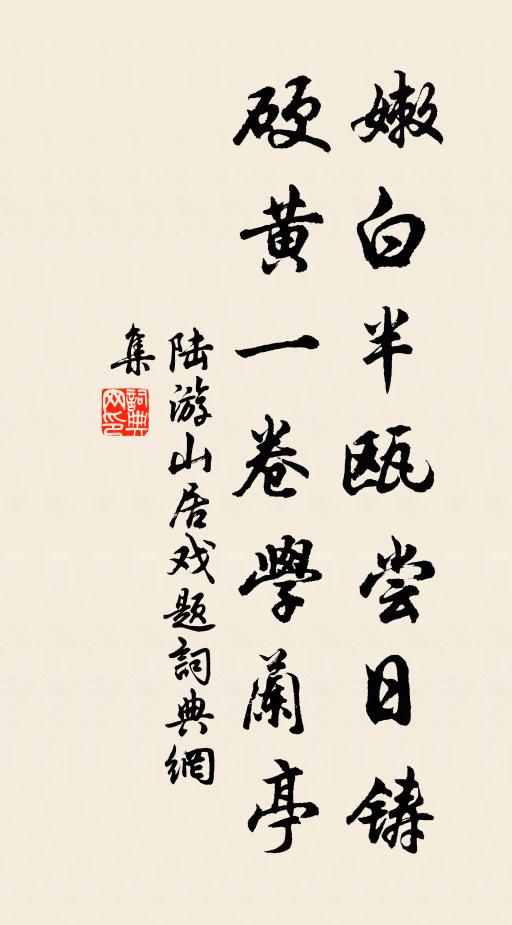 嫩白半瓯尝日铸
硬黄一卷學蘭亭
陆游山居戏题詞典網
集
詞典网印